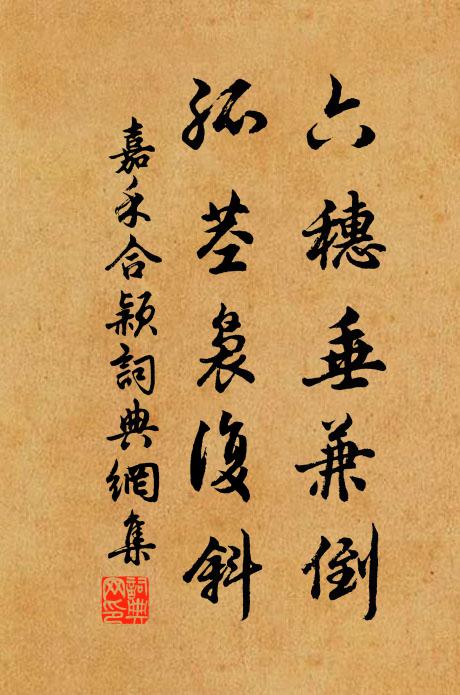 六穗垂兼倒
孤茎袅復斜
嘉禾合颖詞典網集
詞典网印